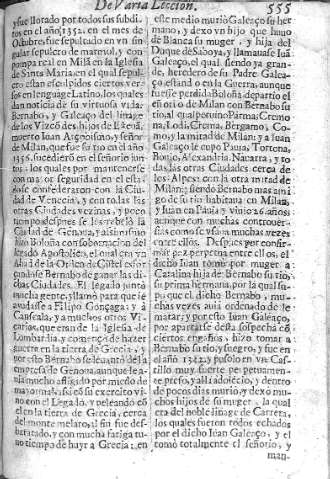 De Varia Leccion. 555
y fue llorado por todos sus subdi-
tos en el año 1352. en el mes de
Octubre, fue sepultado en vn sun-
pulcro de marmol, y con
pompa real en Milã en la Iglesia
de Santa Maria en el qual sepul-
cro estan esculpidos ciertos ver-
sos en lengua Latina, los quales
dan noticia de su virtuosa vida.
Bernabo, y Galeaço del linage
de los Vizcõdes hijos de
murto Iuan Arçobispo, y señor
de Milan, que fue su tio en el año
1356. sucedierõ en el señorio jun-
tos, los quales por mantenerse
con mayor seguridad en el esta-
do se confederaron con la Ciu-
dad de Venecia, y con todas las
otras Ciudades vezinas, y poco
tiempo despues se les rebelò la
Ciudad de Genoua, y assimismo
hizo Boloña con sobornacion del
Legado Apostolico, el qual era vn
Abad de la Orden de Cistel
Bernabo de ganar las di-
chas Ciudades. El legado juntò
mucha gente, y llamò para que le
ayudasse a Felipo Gonçaga, y à
Canseala, y a muchos otros Vi-
carios, que eran de la Iglesia de
Lombardia, y començò de hazer
guerra en la tierra de Grecia, y
por esto Bernabo se leuantò de la
empresa de Genoua, aunque le a-
uia mucho afligido por miedo de
mayor mal, y assi cõ su exercito vi-
no con el Legado, y peleando cõ
el en la tierra de Grecia, cerca
del monte melaro, al fin fue des-
baratado, y con mucha fatiga tu-
uo tiempo de huyr a Grecia: en
este medio murio Galeaço su her-
mano, y dexo vn hijo que huuo
de Blanca su muger, y hija del
Duque de Saboya, y llamauase Iuã
Galeaço, el qual siendo ya gran-
de, heredero de su Padre Galea-
ço estando en la Guerra, aunque
fuesse perdida Boloña departio el
señorio de Milan con Bernabo su
tio, al qual potuino Parma, Cremo
na, Lodi, Crema, Bergamo, Co-
mo, y la mitad de Milan: y a Iuan
Galeaço le cupo Pauia, Tortona,
Bonjo, Alexandria, Nauarra, y to
das las otras Ciudades cerca de
los Alpes con la otra mitad de
Milan: y siendo Bernabo mas ami
go de su tio habitaua en Milan,
y Iuan en Pauia, y viuio assi años
aunque con muchas controuer-
sias como se vsa muchas vezes
entre ellos. Despues por confir-
mar paz perpetua entre ellos, el
dicho Iuan tomò por muger a
Catalina hija de Bernabo su tio,
su prima hermana, por la qual su-
po que el dicho Bernabo, mu-
chas vezes auia ordenado de le
matar, y por esto Iuan Galeaço,
por apartarse desta sospecha cõ
ciertos engaños, hizo tomar a
Bernabo su tio, y suegro, y fue en
el año 1342. y pusolo en vn Cas-
tillo muy fuerte perpetuamen-
te preso, y alli adolecio, y dentro
de pocos dias murio, y dexo mu-
chos hijos de su muger, la qual
era del noble linage de Carreta,
los quales fueron todos echados
por el dicho Iuan Galeaço, y el
tomò totalmente el señorio, y
man-